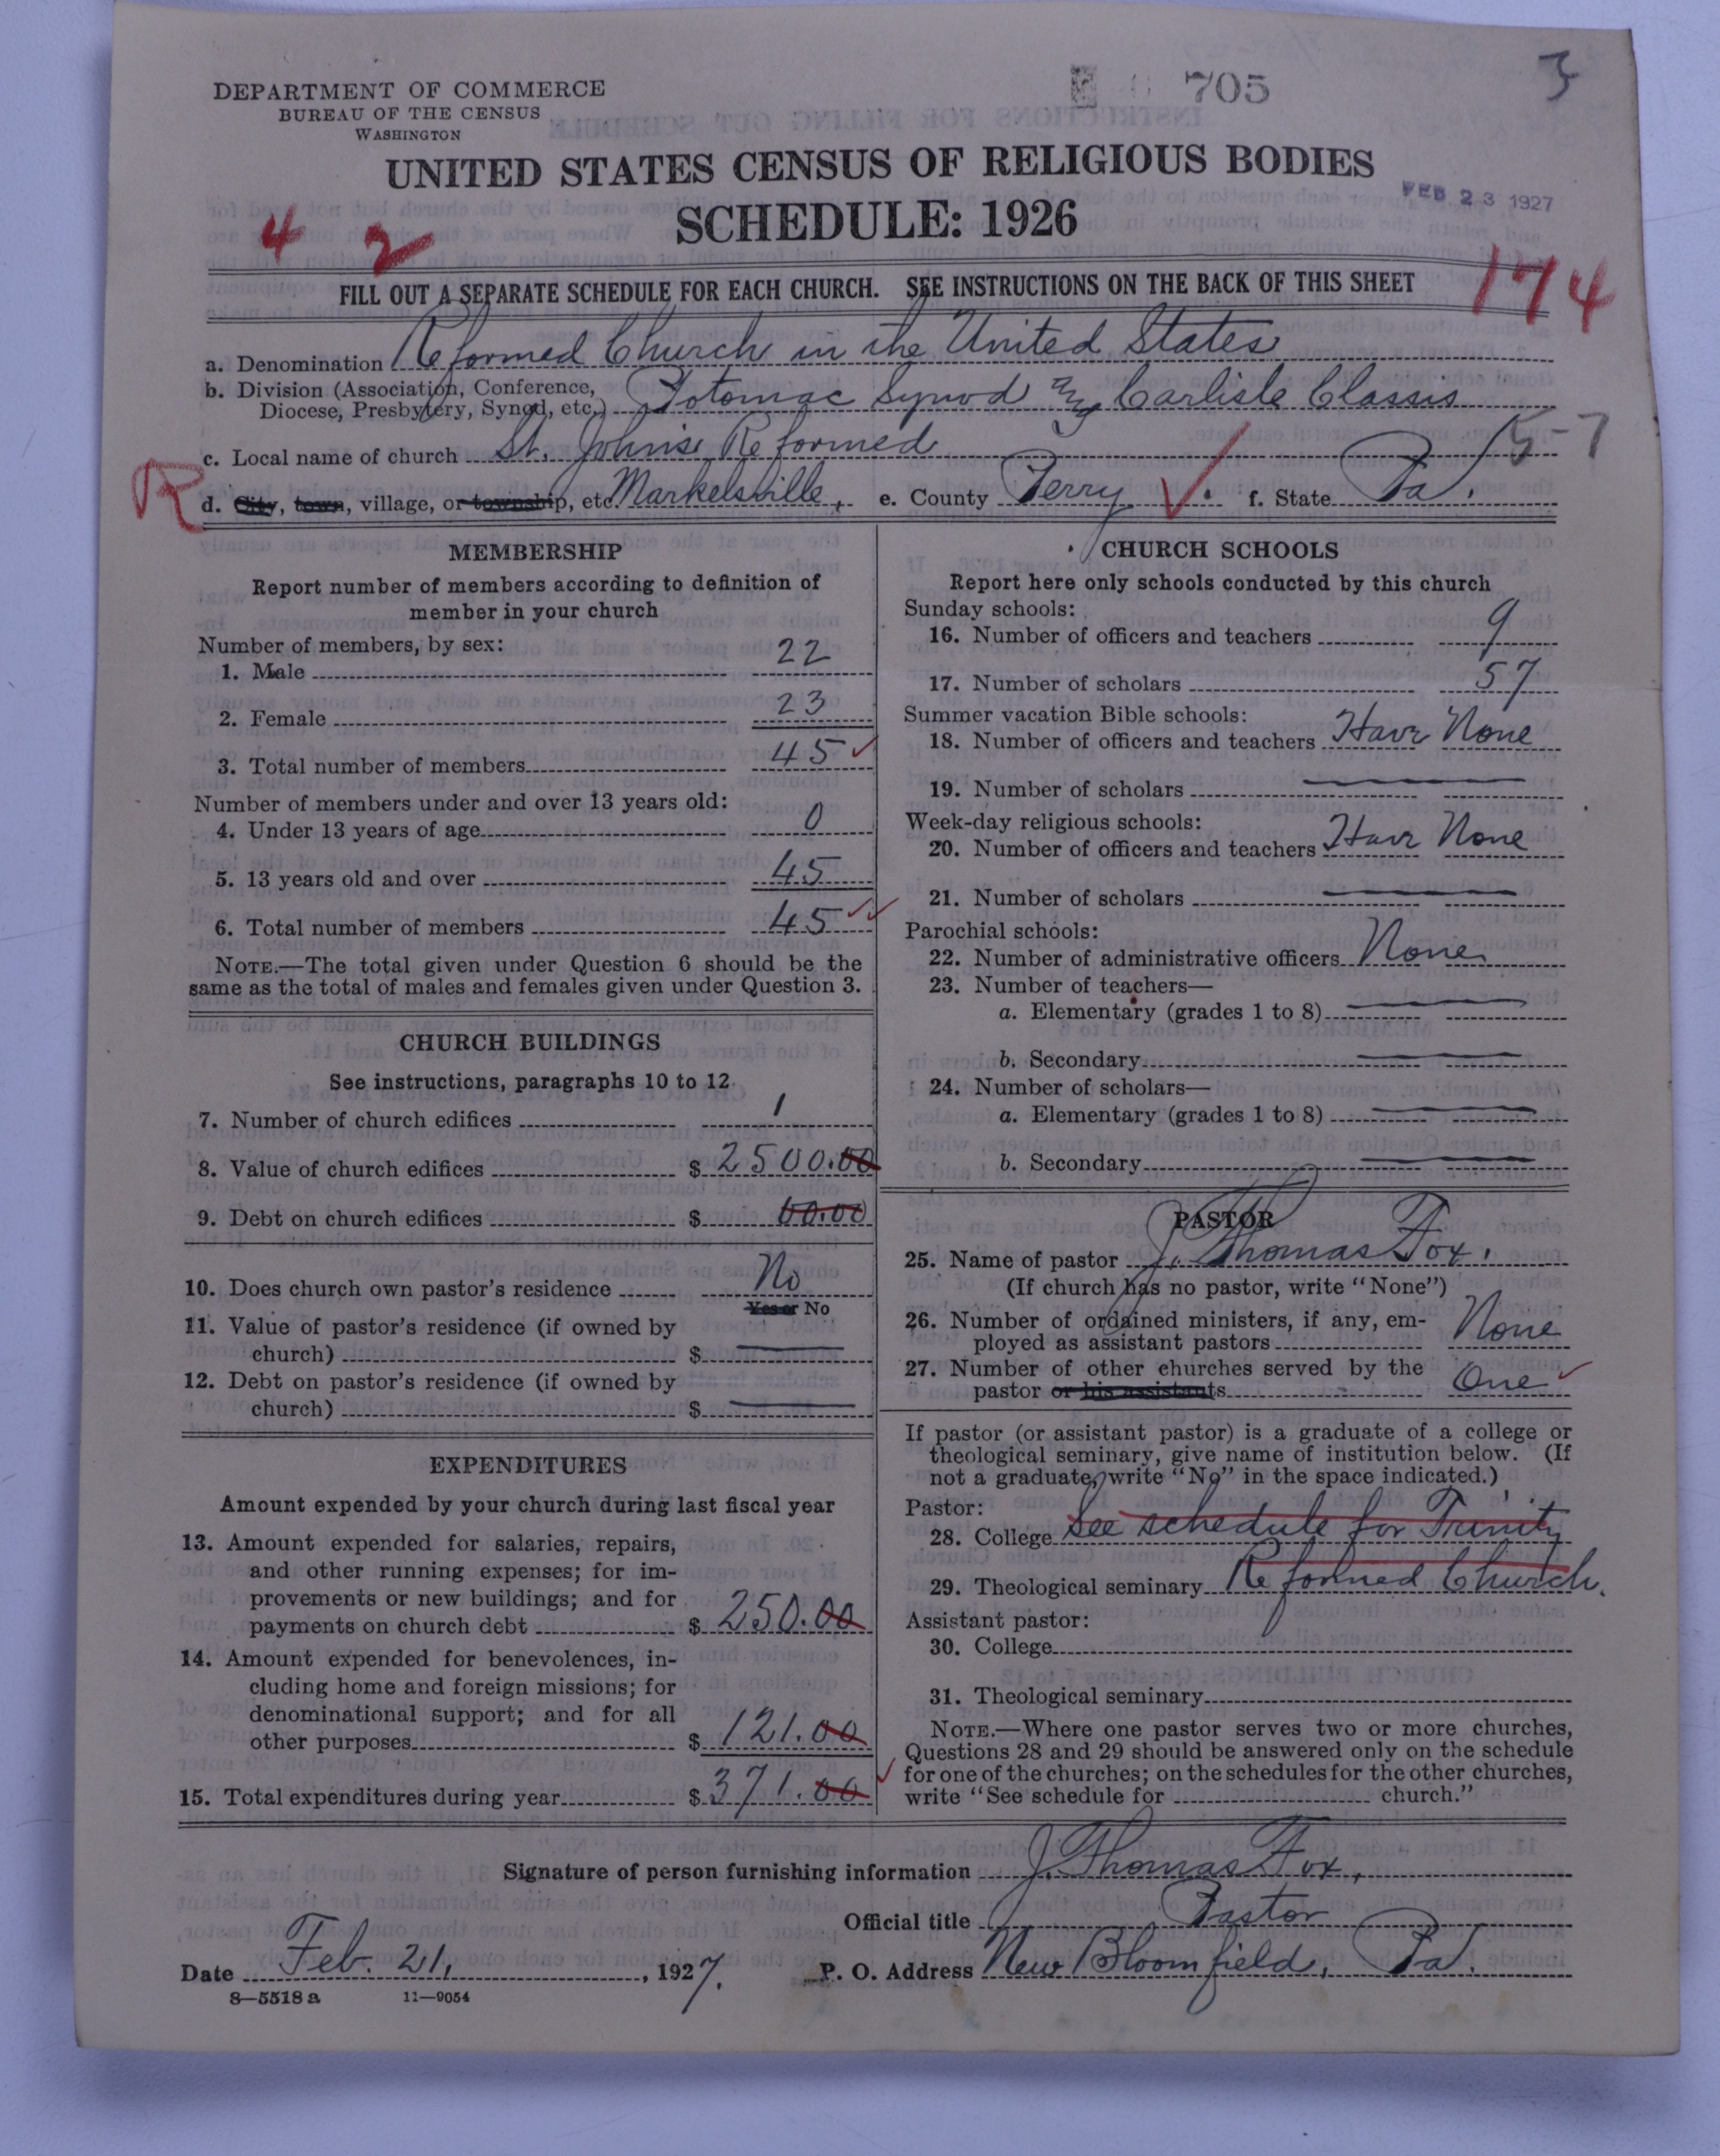 3
705
DEPARTMENT OF COMMERCE
BUREAU OF THE CENSUS
WASHINGTON
UNITED STATES CENSUS OF RELIGIOUS BODIES
FEB 23 1927
SCHEDULE: 1926
4 2
174
FILL OUT A SEPARATE SCHEDULE FOR EACH CHURCH. SEE INSTRUCTIONS ON THE BACK OF THIS SHEET
a. Denomination Reformed Church in the United States
b. Division (Association, Conference,
Diocese, Presbytery, Synod, etc.) Potomac Synod Carlisle Classis
c. Local name of church St. John's Reformed
R
d. City, town, village, or township, etc. Markelsville, e. County Perry f. State Pa.
MEMBERSHIP
Report number of members according to definition of
member in your church
Number of members, by sex:
1. Male 22
2. Female 23
3. Total number of members 45
Number of members under and over 13 years old:
4. Under 13 years of age 0
5. 13 years old and over 45
6. Total number of members 45
NOTE.—The total given under Question 6 should be the
same as the total of males and females given under Question 3.
CHURCH BUILDINGS
See instructions, paragraphs 10 to 12
7. Number of church edifices 1
8. Value of church edifices $ 2500.00
9. Debt on church edifices $ 00.00
10. Does church own pastor's residence No
Yes or No
11. Value of pastor's residence (if owned by
church) $
12. Debt on pastor's residence (if owned by
church) $
EXPENDITURES
Amount expended by your church during last fiscal year
13. Amount expended for salaries, repairs,
and other running expenses; for im-
provements or new buildings; and for
payments on church debt $ 250.00
14. Amount expended for benevolences, in-
cluding home and foreign missions; for
denominational support; and for all
other purposes $ 121.00
15. Total expenditures during year $ 371.00
CHURCH SCHOOLS
Report here only schools conducted by this church
Sunday schools:
16. Number of officers and teachers 9
17. Number of scholars 57
Summer vacation Bible schools:
18. Number of officers and teachers Have None
19. Number of scholars
Week-day religious schools:
20. Number of officers and teachers Have None
21. Number of scholars
Parochial schools:
22. Number of administrative officers None
23. Number of teachers—
a. Elementary (grades 1 to 8)
b. Secondary
24. Number of scholars—
a. Elementary (grades 1 to 8)
b. Secondary
PASTOR
25. Name of pastor J. Thomas Fox.
(If church has no pastor, write "None")
26. Number of ordained ministers, if any, em-
ployed as assistant pastors None
27. Number of other churches served by the
pastor or his assistants One
If pastor (or assistant pastor) is a graduate of a college or
theological seminary, give name of institution below. (If
not a graduate, write "No" in the space indicated.)
Pastor:
28. College See schedule for Trinity
29. Theological seminary Reformed Church.
Assistant pastor:
30. College
31. Theological seminary
NOTE.—Where one pastor serves two or more churches,
Questions 28 and 29 should be answered only on the schedule
for one of the churches; on the schedules for the other churches,
write "See schedule for church."
Signature of person furnishing information J. Thomas Fox,
Official title Pastor
Date Feb. 21, 1927. P. O. Address New Bloomfield, Pa.
8—5518 a 11—9054